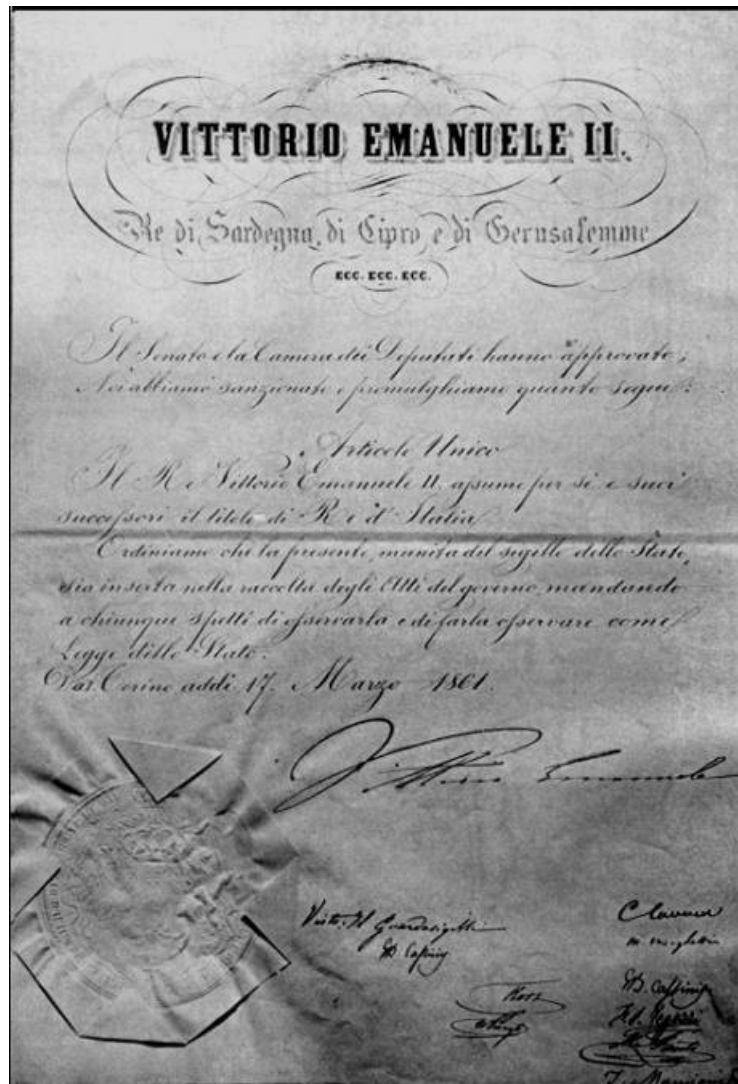 VITTORIO EMANUELE II.
Re di Sardegna, di Cipro e di Gerusalemme
ECC. ECC. ECC.
Il Senato e la Camera dei Deputati hanno approvato;
Noi abbiamo sanzionato e promulghiamo quanto segue:
Articolo Unico
Il Re Vittorio Emanuele II assume per se e suoi
successori il titolo di Re d'Italia
Ordiniamo che la presente, munita del sigillo dello Stato,
sia inserta nella raccolta degli Atti del governo, mandando
a chiunque spetti di osservarla e di farla osservare come
Legge dello Stato.
Dat. Torino addì 17. Marzo 1861.
Vittorio Emanuele
Visto Il Guardasigilli
G. B. Cassinis
C Cavour
M. Minghetti
G. B. Cassinis